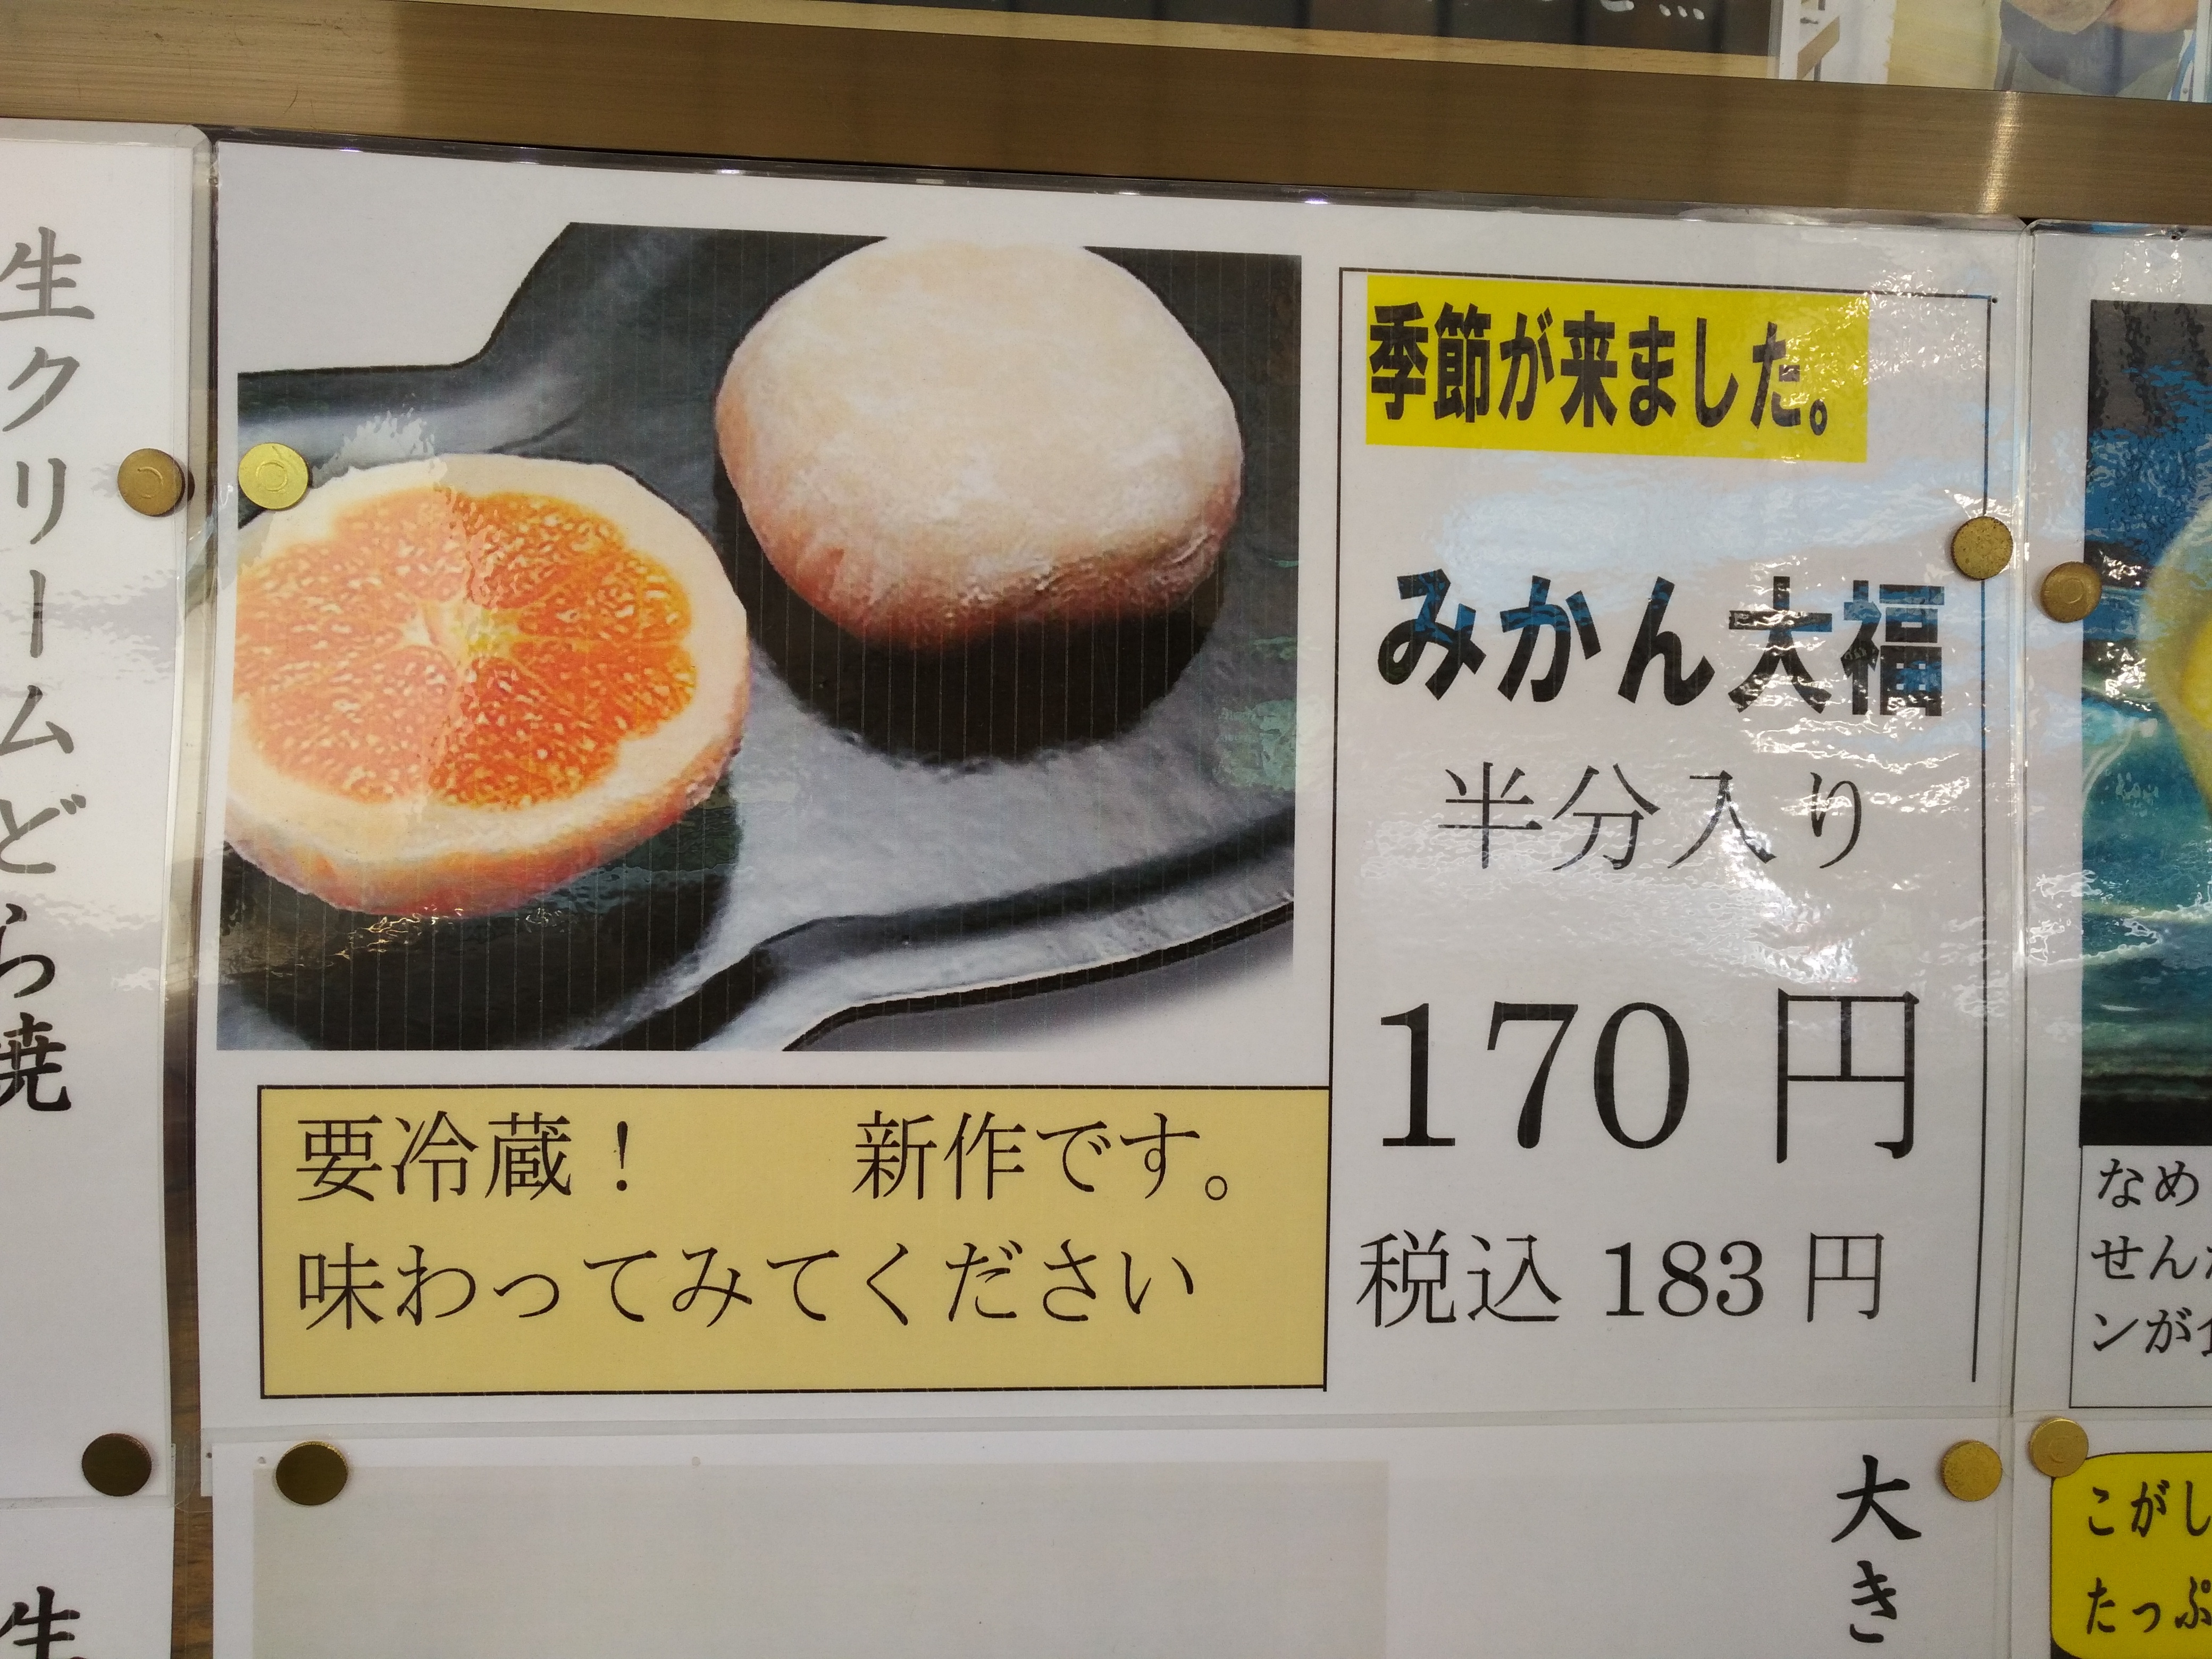 生クリームどら焼
季節が来ました。
みかん大福
半分入り
170 円
税込 183 円
要冷蔵！ 新作です。
味わってみてください
なめ
せん
ンが
大き
こがし
たっぷ
生